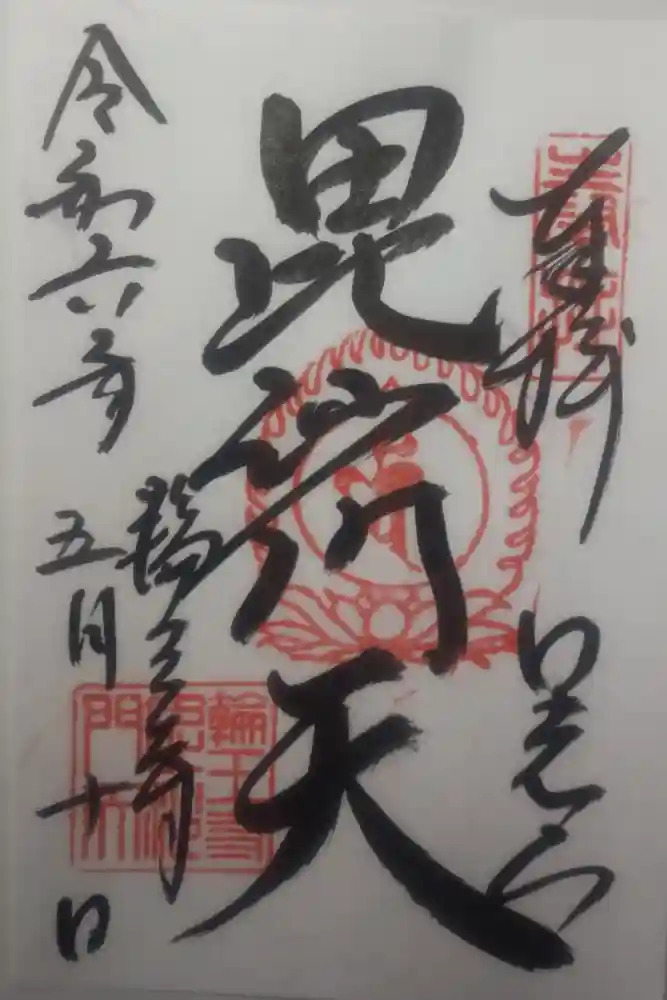 奉拝
日光山
毘沙門天
輪王寺
令和六年
五月十日
輪王寺